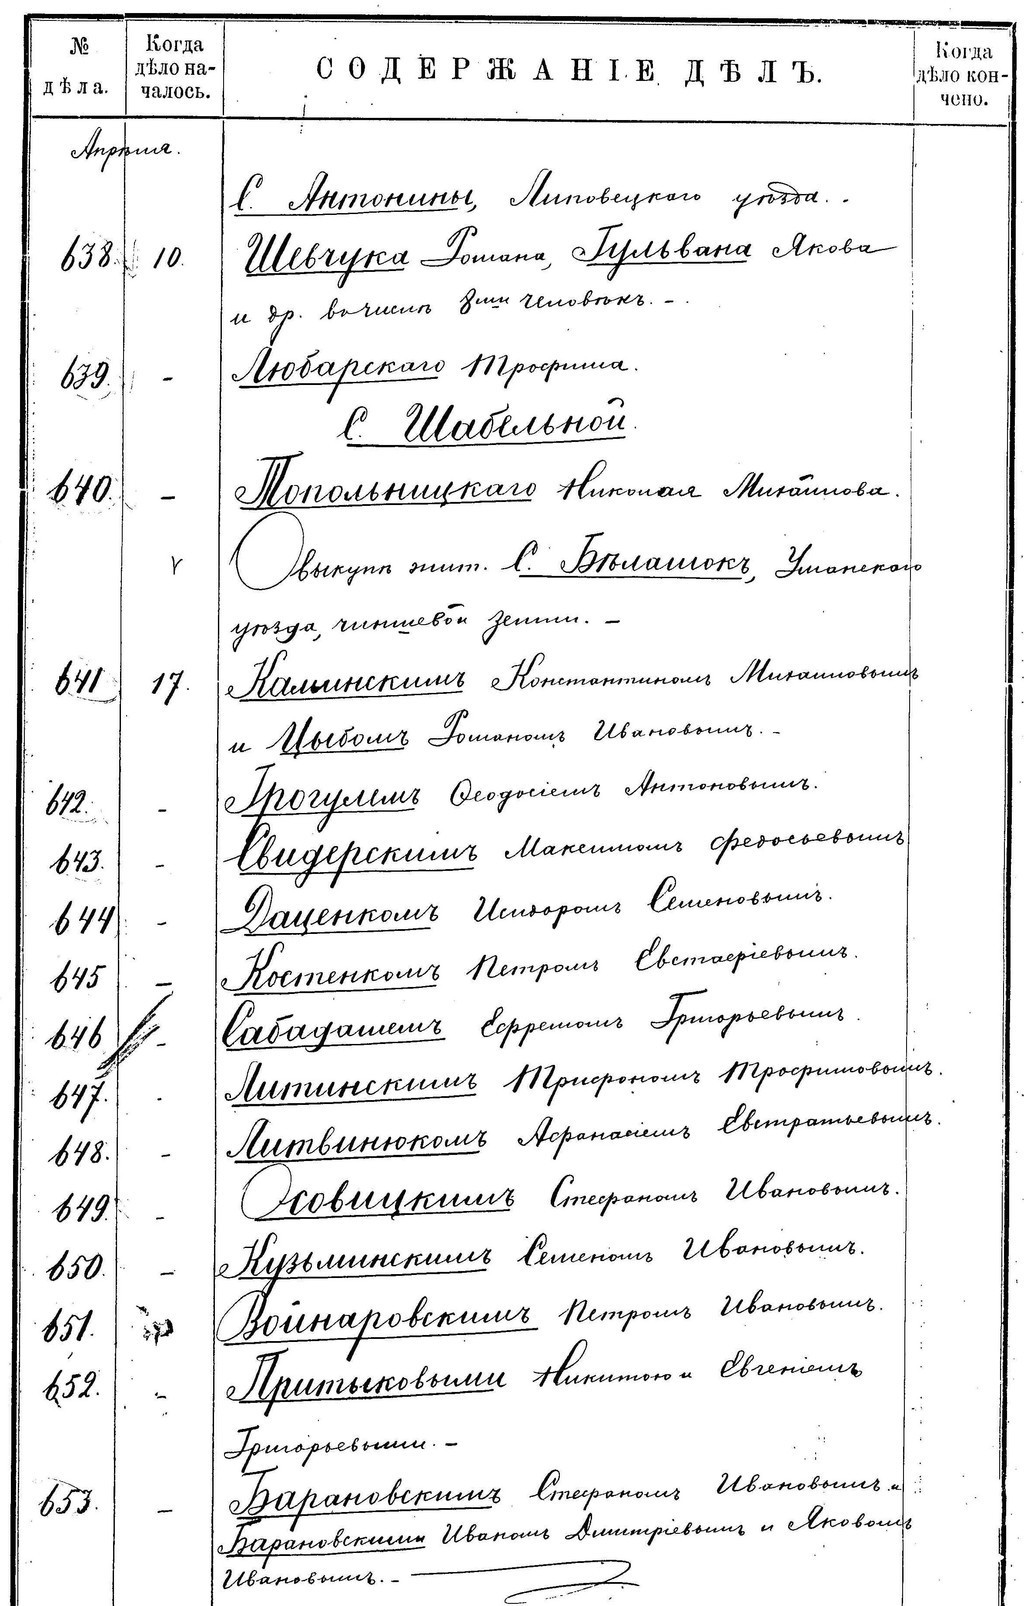 № дѣла.
Когда дѣло началось.
СОДЕРЖАНІЕ ДѢЛЪ.
Когда дѣло кончено.
Апрѣля.
С. Антонины, Липовецкаго уѣзда. -
638. 10. Шевчука Романа, Гульвана Якова
и др. въ числѣ 8ми человѣкъ. -
639. - Любарскаго Трофима.
С. Шабельной.
640. - Топольницкаго Николая Михайлова.
О выкупѣ жит. С. Бѣлашокъ, Уманскаго
уѣзда, чиншевой земли. -
641 17. Калинскимъ Константиномъ Михайловымъ
и Цыбомъ Романомъ Ивановымъ. -
642. - Грогулемъ Ѳеодосіемъ Антоновымъ.
643. - Свидерскимъ Максимомъ Федосьевымъ
644 - Даценкомъ Исидоромъ Семеновымъ.
645 - Костенкомъ Петромъ Евстафіевымъ.
646 - Сабадашемъ Ефремомъ Григорьевымъ.
647. - Литинскимъ Трифономъ Трофимовымъ.
648. - Литвинюкомъ Афанасіемъ Евстратьевымъ.
649. - Осовицкимъ Стефаномъ Ивановымъ.
650. - Кузьминскимъ Семеномъ Ивановымъ.
651. Войнаровскимъ Петромъ Ивановымъ.
652. - Притыковыми Никитою и Евгеніемъ
Григорьевыми. -
653. - Барановскимъ Стефаномъ Ивановымъ и
Барановскими Иваномъ Дмитріевымъ и Яковомъ
Ивановымъ. -